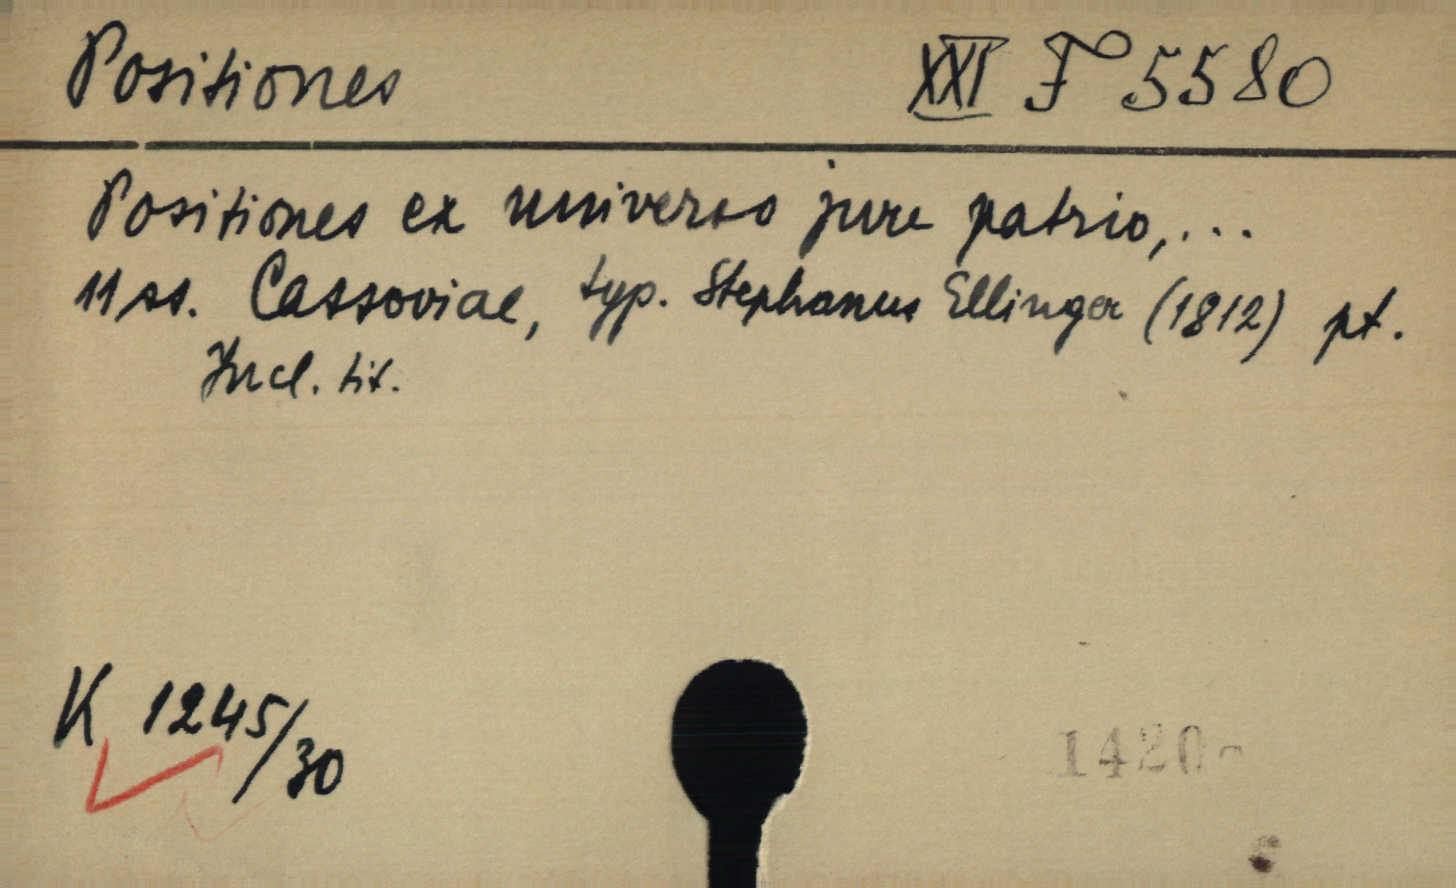 Positiones XXI F 5580
Positiones ex universo jure patrio,...
11 ss. Cassoviae, typ. Stephanus Ellinger (1812) pt.
Incl. tit.
K 1245/30
1420